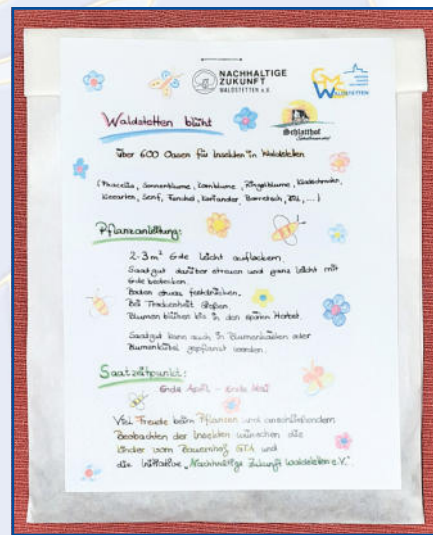 NACHHALTIGE
ZUKUNFT
WALDSTETTEN e.V.
GMW
WALDSTETTEN
Waldstetten blüht
Schlatthof
über 600 Oasen für Insekten in Waldstetten
(Phacelia, Sonnenblume, Kornblume, Ringelblume, Klatschmohn,
Kleearten, Senf, Fenchel, Koriander, Borretsch, Dill, ...)
Pflanzanleitung:
2-3m² Erde leicht auflockern.
Saatgut darüber streuen und ganz leicht mit
Erde bedecken.
Boden etwas festdrücken.
Bei Trockenheit gießen.
Blumen blühen bis in den späten Herbst.
Saatgut kann auch in Blumenkästen oder
Blumenkübel gepflanzt werden.
Saatzeitpunkt:
Ende April - Ende Mai
Viel Freude beim Pflanzen und anschließendem
Beobachten der Insekten wünschen die
Kinder vom Bauernhof GTA und
die Initiative „Nachhaltige Zukunft Waldstetten e.V.".